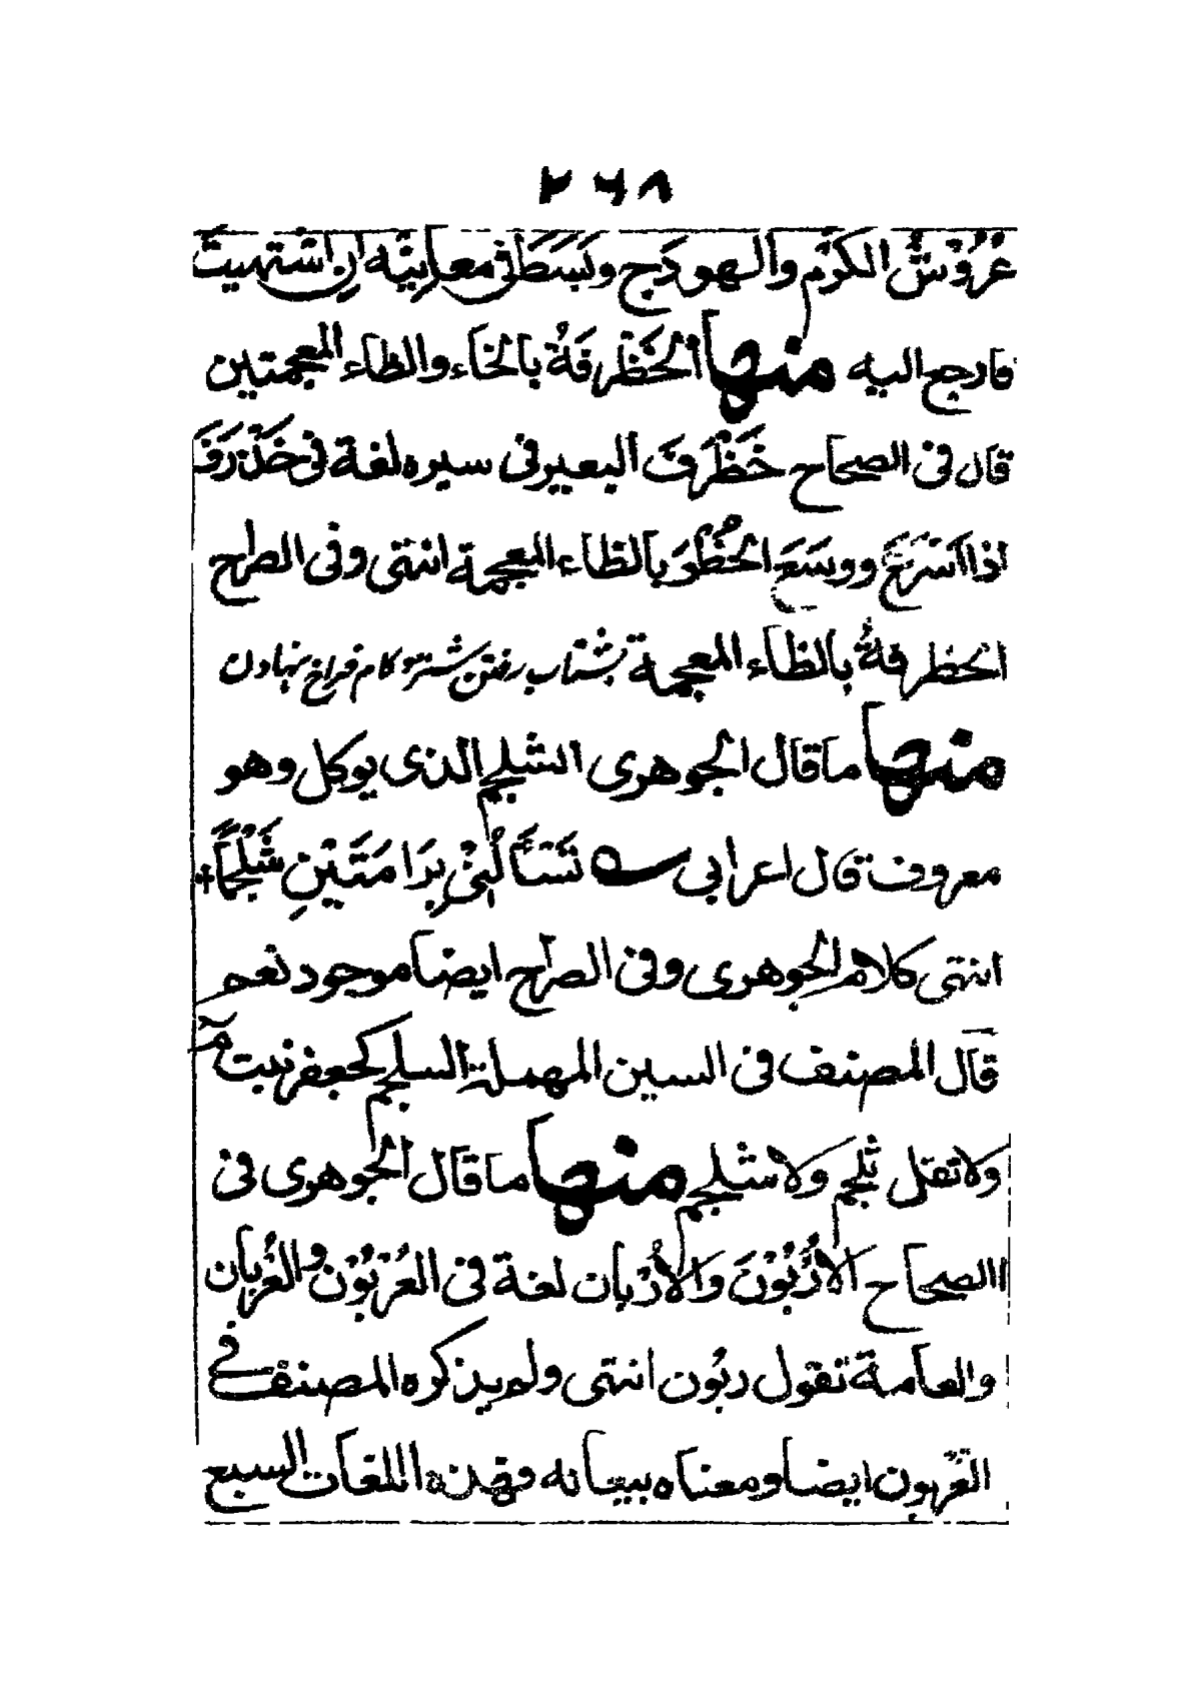 ٢٦٨
عُرُوْشُ الكَرْمِ والهودَج وبَسَطَ فى معانِيْه اِن اشتهيت
فارجع اليه منها الخَظْرفَةُ بالخاء والظاء المعجمتين
قال فى الصحاح خَظْرَفَ البعير فى سيره لغة فى خَذْرَفَ
اذا اَسْرَعَ ووسَعَ الخُطْوَ بالظاء المعجمة انتهى وفى الصراح
الخظرفةُ بالظاء المعجمة بشتاب رفتن شتر و كام فراخ نهادن
منها ما قال الجوهرى الشلجم الذى يوكل وهو
معروف قال اعرابى ؎ تَسْأَلُنِىْ بِرَامَتَيْنِ شَلْجَمًا +
انتهى كلام الجوهرى وفى الصراح ايضا موجود نعم
قال المصنف فى السين المهملة السلجم كجعفر نبت م
ولا تقل ثلجم ولا شلجم منها ما قال الجوهرى فى
الصحاح الاُرْبُوْنَ والاُرْبان لغة فى العُرْبُوْن والعُرْبان
والعامة تقول ربُون انتهى ولم يذكره المصنف فے
العربون ايضا ومعناه بيعانه فهذه اللغات السبع